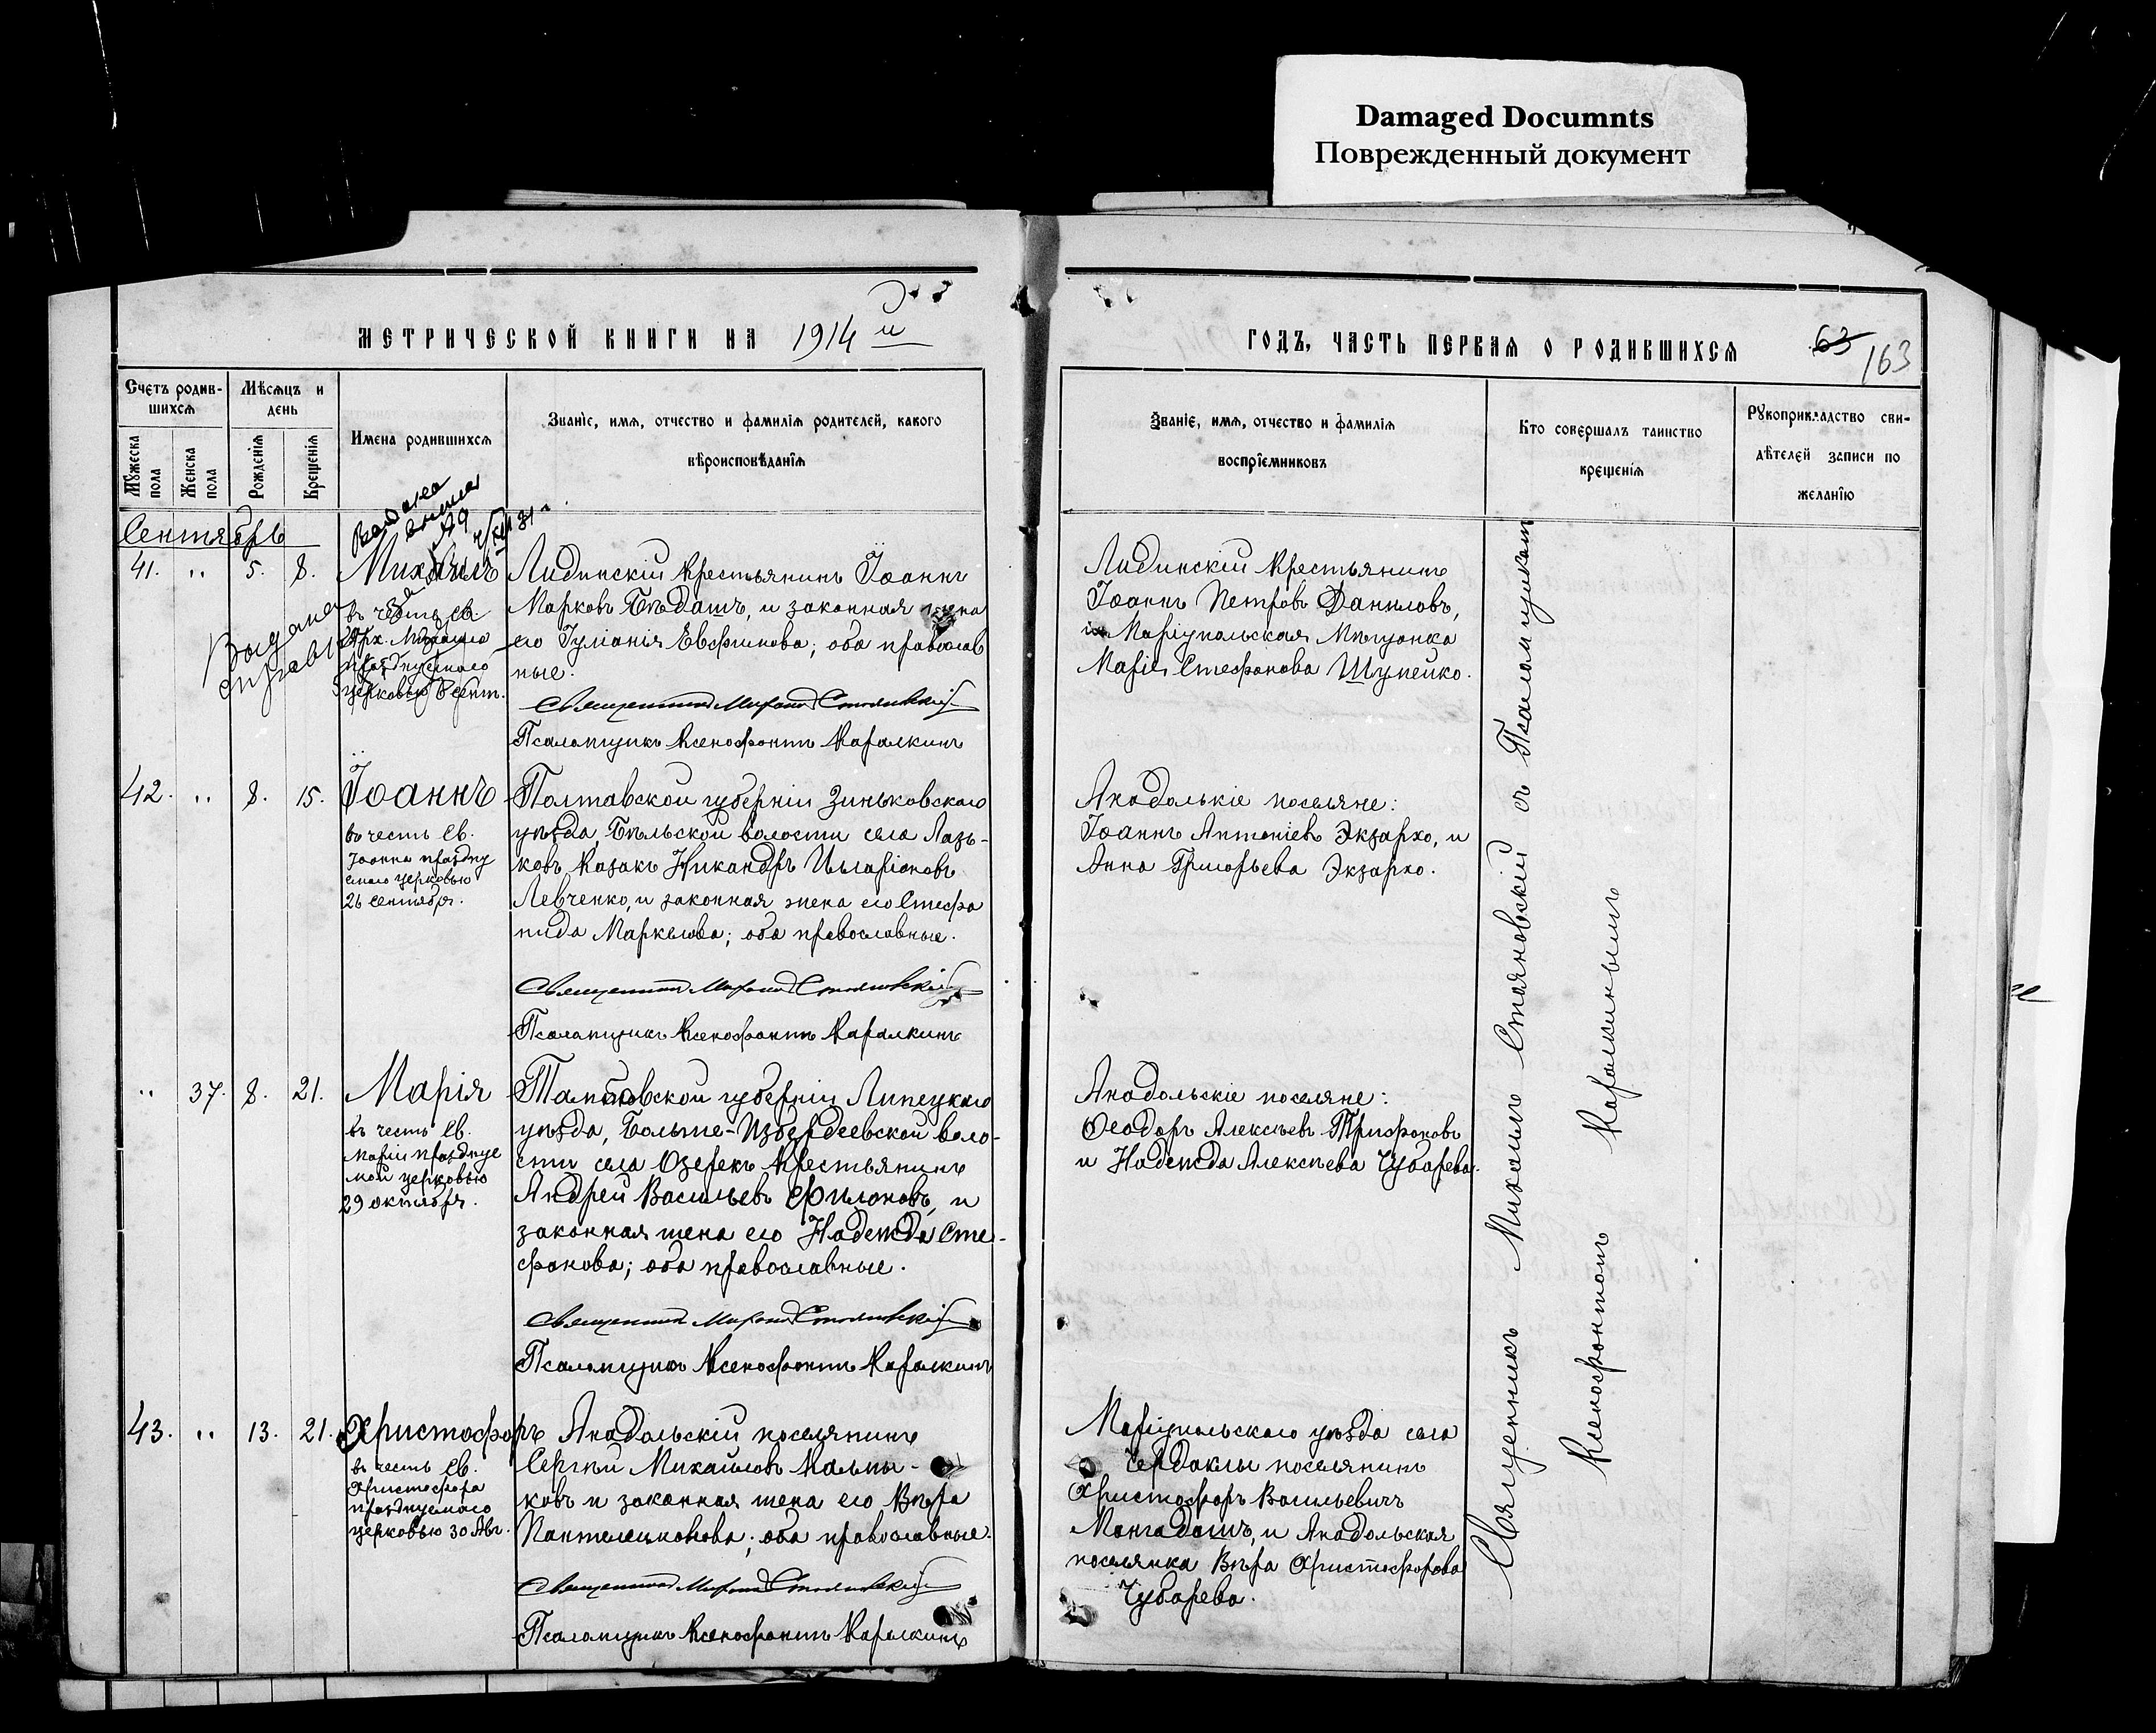 Damaged Documnts
Поврежденный документ
МЕТРИЧЕСКОЙ КНИГИ НА 1914 й
ГОДЪ, ЧАСТЬ ПЕРВАЯ О РОДИВШИХСЯ
63
163
Счетъ родив-
шихся
Мужеска пола
Женска пола
Мѣсяцъ и
день
Рожденія
Крещенія
Имена родившихся
Званіе, имя, отчество и фамилія родителей, какого
вѣроисповѣданія
Званіе, имя, отчество и фамилія
воспріемниковъ
Кто совершалъ таинство
крещенія
Рукоприкладство сви-
дѣтелей записи по
желанію
Сентябрь
41. " 5. 8.
Михаилъ
въ честь св.
Арх. Михаила
празднуемаго
церковью 8 сент.
Выдана
Лидинскій крестьянинъ Іоаннъ
Марковъ Бѣдашъ, и законная жена
его Іуліанія Евфимова; оба православ
ные.
Священникъ Михаилъ Стояновскій
Псаломщикъ Ксенофонтъ Каралкинъ
Лидинскій крестьянинъ
Іоаннъ Петровъ Даниловъ,
и Маріупольская мѣщанка
Марія Стефанова Шупейко.
42. " 8. 15.
Іоаннъ
въ честь св.
Іоанна празdну
емаго церковью
26 сентября.
Полтавской губерніи Зиньковскаго
уѣзда, Бѣльской волости села Лазь-
ковъ казакъ Никандръ Иларіоновъ
Левченко, и законная жена его Стефа
нида Маркелова; оба православные.
Священникъ Михаилъ Стояновскій
Псаломщикъ Ксенофонтъ Каралкинъ
Анадолькіе поселяне:
Іоаннъ Антоніевъ Экзархо, и
Анна Григорьева Экзархо.
" 37. 8. 21.
Марія
въ честь св.
Маріи празднуе
мой церковью
29 октября.
Тамбовской губерніи Липецкаго
уѣзда, Больше-Избердеевской воло-
сти села Озерекъ крестьянинъ
Андрей Васильевъ Филоновъ, и
законная жена его Надежда Сте-
фанова; оба православные.
Священникъ Михаилъ Стояновскій
Псаломщикъ Ксенофонтъ Каралкинъ
Анадольскіе поселяне:
Ѳеодоръ Алексѣевъ Трифоновъ
и Надежда Алексѣева Чубарева.
43. " 13. 21.
Христофоръ
въ честь св.
Христофора
празднуемаго
церковью 30 Авг.
Анадольскій поселянинъ
Сергѣй Михайловъ Калмы-
ковъ и законная жена его Вѣра
Пантелеимонова; оба православные.
Священникъ Михаилъ Стояновскій
Псаломщикъ Ксенофонтъ Каралкинъ
Маріупольскаго уѣзда села
Чердаклы поселянинъ
Христофоръ Васильевичъ
Мангадашъ, и Анадольская
поселянка Вѣра Христофорова
Чубарева.
Священникъ Михаилъ Стояновскій съ Псаломщикомъ
Ксенофонтомъ Каралкинымъ